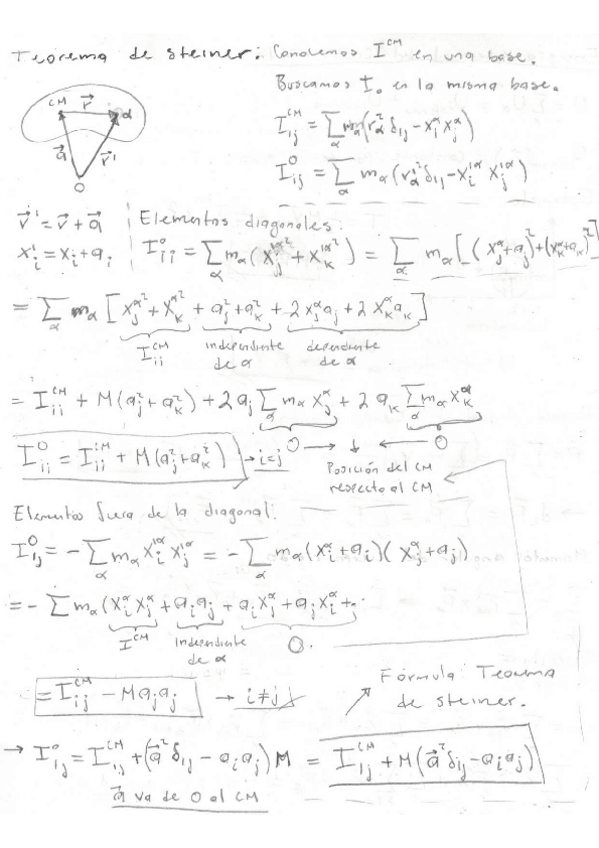 Teorema de steiner: Conocemos I^CM en una base.
Buscamos I_o en la misma base.
CM r⃗ α
a⃗ r⃗'
O
I_ij^CM = Σ_α m_α(r_α² δ_ij - x_i^α x_j^α)
I_ij^O = Σ_α m_α(r'_α² δ_ij - x_i'^α x_j'^α)
r⃗' = r⃗ + a⃗
x'_i = x_i + a_i
Elementos diagonales:
I_ii^o = Σ_α m_α(x_j'^α² + x_k'^α²) = Σ_α m_α[(x_j^α + a_j)² + (x_k^α + a_k)²]
= Σ_α m_α [x_j^α² + x_k^α² + a_j² + a_k² + 2x_j^α a_j + 2x_k^α a_k]
I_ii^CM independiente de α dependiente de α
= I_ii^CM + M(a_j² + a_k²) + 2a_j Σ_α m_α x_j^α + 2a_k Σ_α m_α x_k^α
0 → ↓ ← 0
I_ii^O = I_ii^CM + M(a_j² + a_k²) → i=j
Posición del CM
respecto al CM
Elementos fuera de la diagonal:
I_ij^O = -Σ_α m_α x_i'^α x_j'^α = -Σ_α m_α(x_i^α + a_i)(x_j^α + a_j)
= -Σ m_α(x_i^α x_j^α + a_i a_j + a_i x_j^α + a_j x_i^α +
I^CM independiente de α 0.
= I_ij^CM - M a_i a_j → i≠j
Fórmula Teorema
de steiner.
→ I_ij^o = I_ij^CM + (a⃗² δ_ij - a_i a_j) M = I_ij^CM + M(a⃗² δ_ij - a_i a_j)
a⃗ va de O al CM